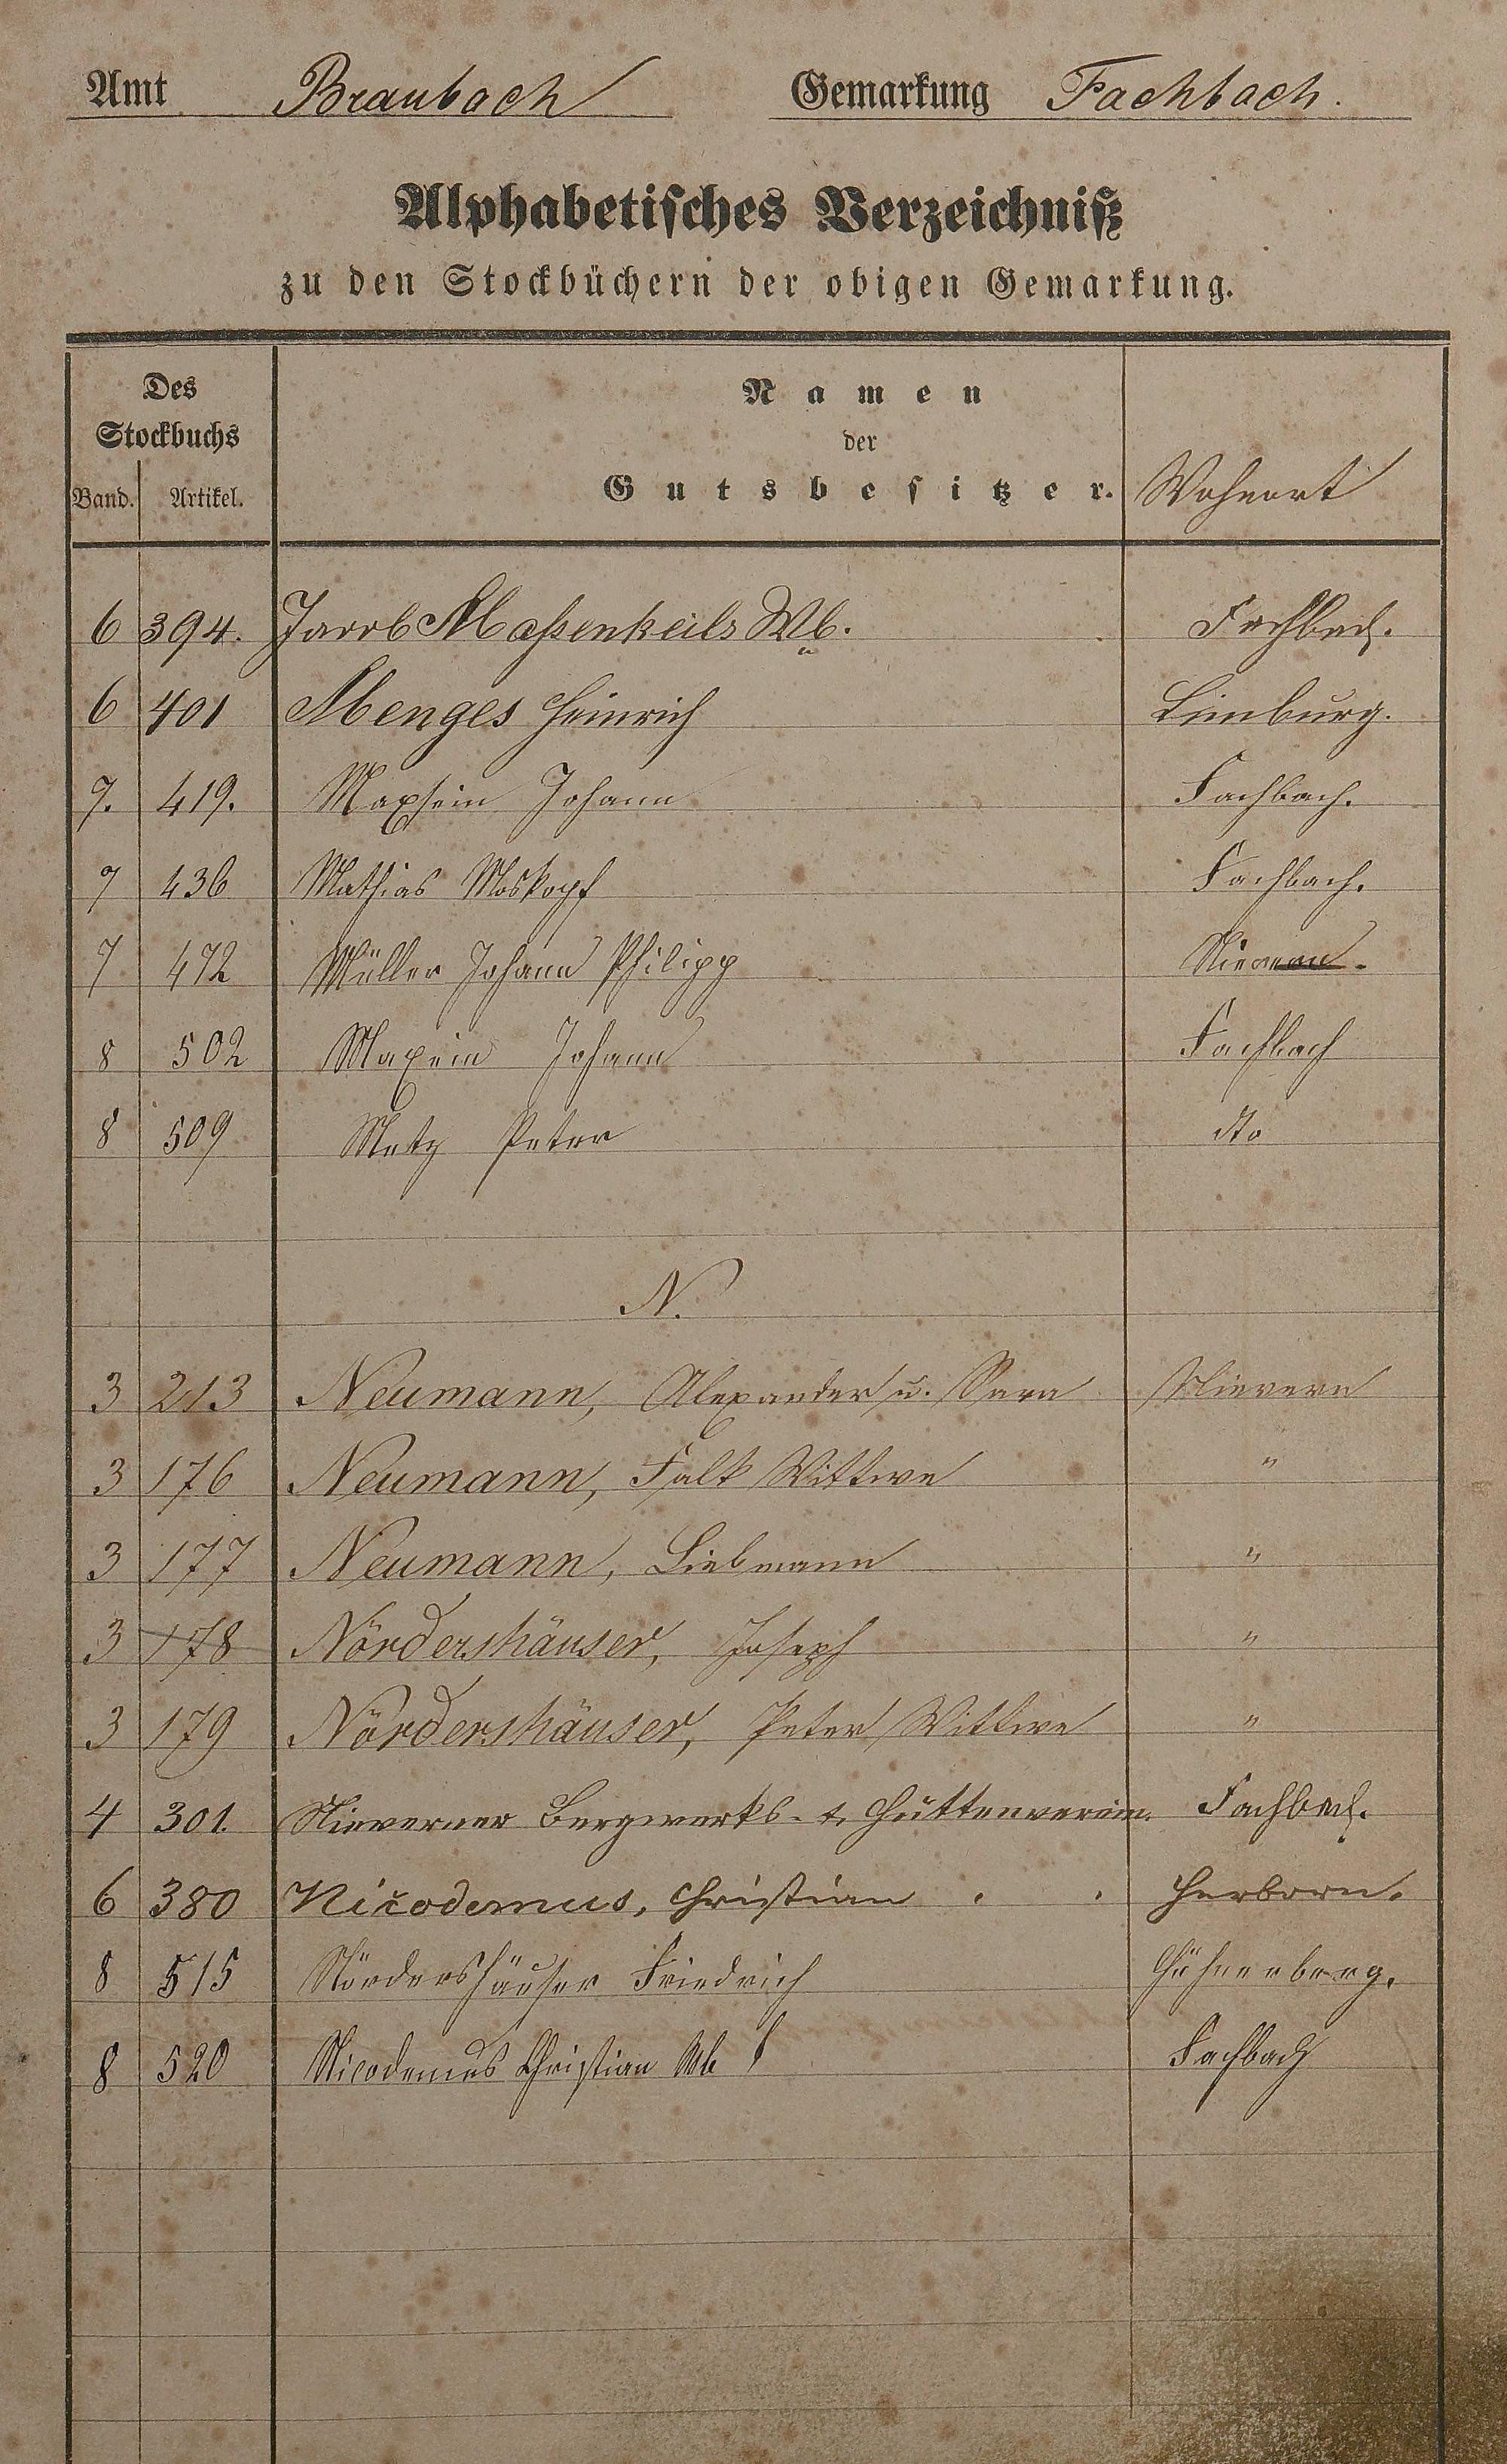 Amt Braubach Gemarkung Fachbach.
Alphabetisches Verzeichniß
zu den Stockbüchern der obigen Gemarkung.
Des
Stockbuchs
Band. Artikel.
Namen
der
Gutsbesitzer.
Wohnort
6 394. Jacob Maßenkeils Wb. Fachbach.
6 401 Menges Heinrich Limburg.
7. 419. Maxsein Johann Fachbach.
7 436 Mathias Moskopf Fachbach.
7 472 Müller Johann Philipp Nievern.
8 502 Maxein Johann Fachbach
8 509 Metz Peter dto
N.
3 213 Neumann, Alexander u. Sara Nievern
3 176 Neumann, Falk Wittwe "
3 177 Neumann, Liebmann "
3 178 Nördershäuser, Joseph "
3 179 Nördershäuser, Peter Wittwe "
4 301. Nieverner Bergwerks- & Hüttenverein. Fachbach.
6 380 Nicodemus, Christian Herborn.
8 515 Nördershäuser Friedrich Hühnerberg.
8 520 Nicodemus Christian Wb Fachbach